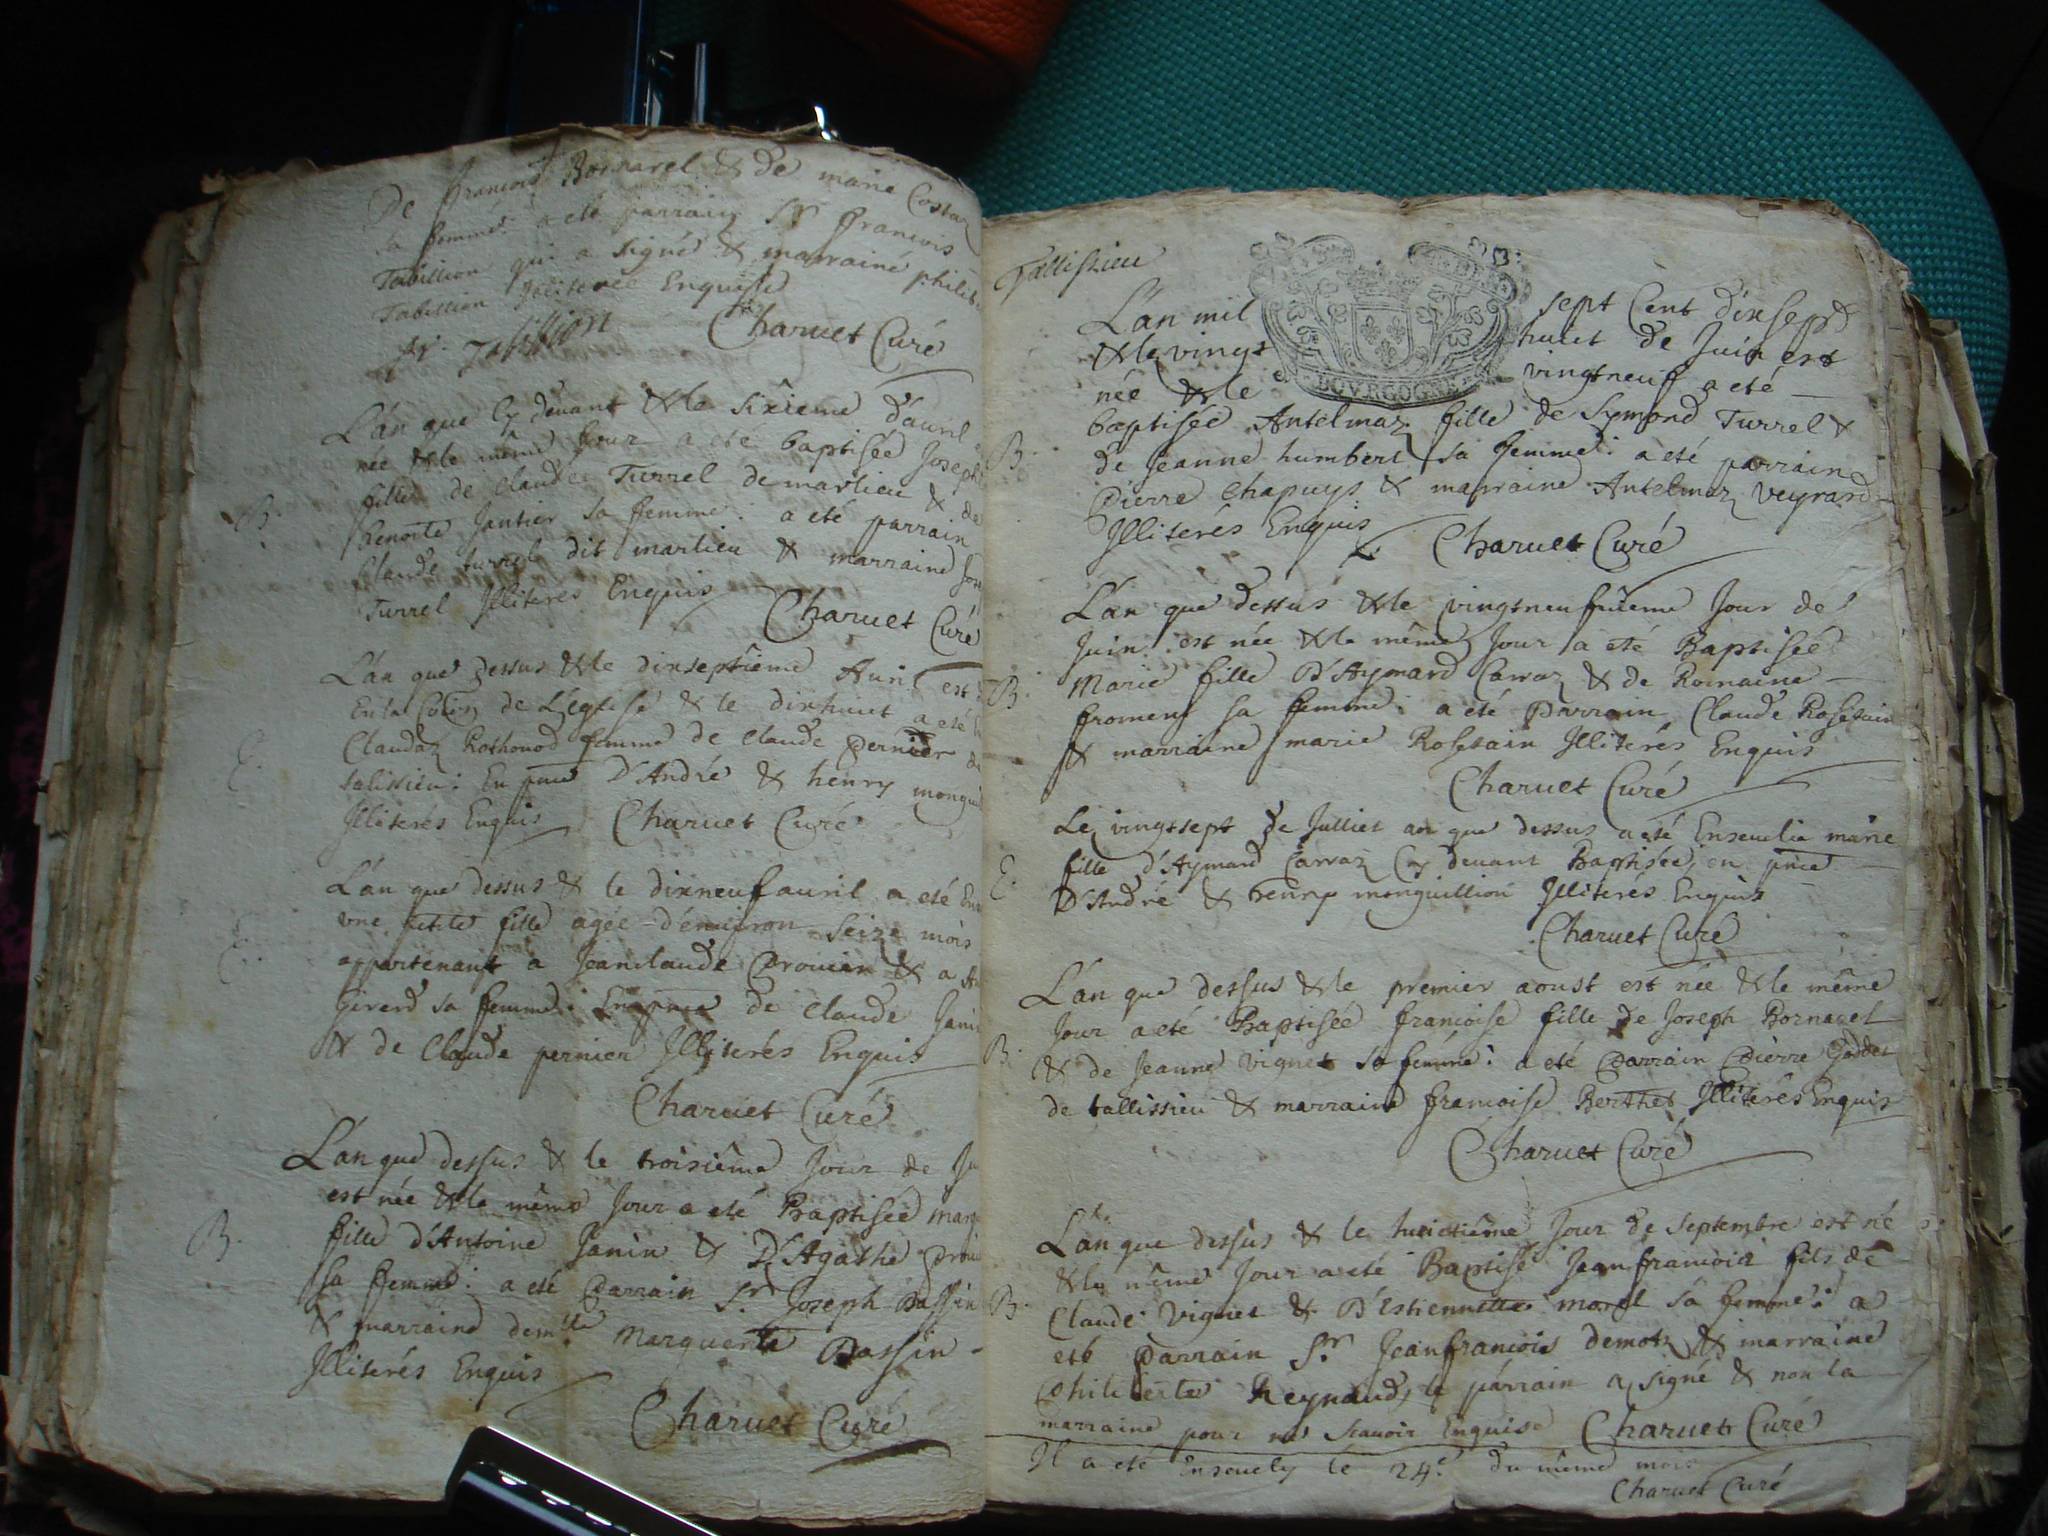 De françois Bornarel & de marie Costaz
sa femme: a eté parrain Sr. françois
Tabillion qui a signé & marraine philib
Tabillion Jlliterée Enquise
fr. Tabillion Charuet Curé
L'an que Cy devant & le sixieme d'auril
née & le même Jour a eté baptisée Joseph
B. fille de Claude Turrel de marlieu & de
Benoite Jantier sa femme: a eté parrain
Claude turrel dit marlieu & marraine Jos
Turrel Jlliterés Enquis Charuet Curé
L'an que dessus & le dixseptième Auril est
En la de L'église & le dixhuit a eté
E. Claudaz Rothonod femme de Claude Pernier de
talissieu: En pnce D'André & henry monguil
Jlliterés Enquis Charuet Curé
L'an que dessus & le dixneuf auril a eté En
E. vne petite fille agée d'enuiron seize mois
appartenant a Jeanclaude Drouier & a
Girerd sa femme: En pnce de Claude Janin
& de Claude pernier Jlliterés Enquis
Charuet Curé
L'an que dessus & le troisième Jour de Ju
est née & le même Jour a eté Baptisée marg
B. fille d'Antoine Janin & D'Agathe Droui
sa femme: a eté Parrain Sr. Joseph Bassin
& marraine demlle. Marguerite Bassin
Jlliterés Enquis
Charuet Curé
Tallissieu
BOVRGOGNE
L'an mil sept Cent dixsept
& le vingt huict de Juin est
née & le vingtneuf a eté
baptisée Antelmaz fille de Symond Turrel &
B. de Jeanne humbert sa femme: a eté parrain
Pierre Chapuys & marraine Antelmaz Veyrard
Jlliterés Enquis Charuet Curé
L'an que dessus & le vingtneufuieme Jour de
Juin est née & le même Jour a eté Baptisée
B. Marie fille D'Aymard Carraz & de Romaine
froment sa femme: a eté Parrain Claude Rossetain
& marraine marie Rossetain Jlliterés Enquis
Charuet Curé
Le vingtsept de Julliet an que dessus a eté Enseuelie marie
E. fille d'Aymard Carraz Cy deuant Baptisée, en pnce
D'André & henry monguillion Jlliterés Enquis
Charuet Curé
L'an que dessus & le premier aoust est née & le même
Jour a eté Baptisée francoise fille de Joseph Bornarel
B. & de Jeanne Vignet sa femme: a eté Parrain Pierre Goddet
de tallissieu & marraine francoise Berthet Jlliterés Enquis
Charuet Curé
L'an que dessus & le huictième Jour de Septembre est né
& le même Jour a eté Baptisé Jeanfrancois fils de
B. Claude Vignet & D'Estiennette morel sa femme: a
eté Parrain Sr. Jeanfrancois demotz & marraine
Philiberte Reynaud, le parrain a signé & non la
marraine pour ne scauoir Enquise Charuet Curé
Il a eté Enseuely le 24e. du même mois
Charuet Curé